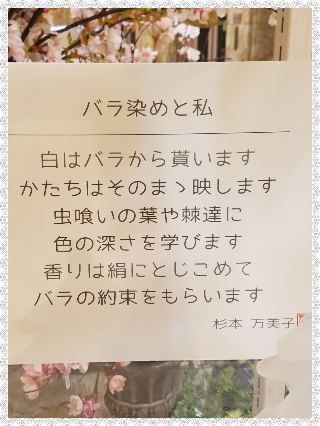 バラ染めと私
白はバラから貰います
かたちはそのまゝ映します
虫喰いの葉や棘達に
色の深さを学びます
香りは絹にとじこめて
バラの約束をもらいます
杉本 万美子